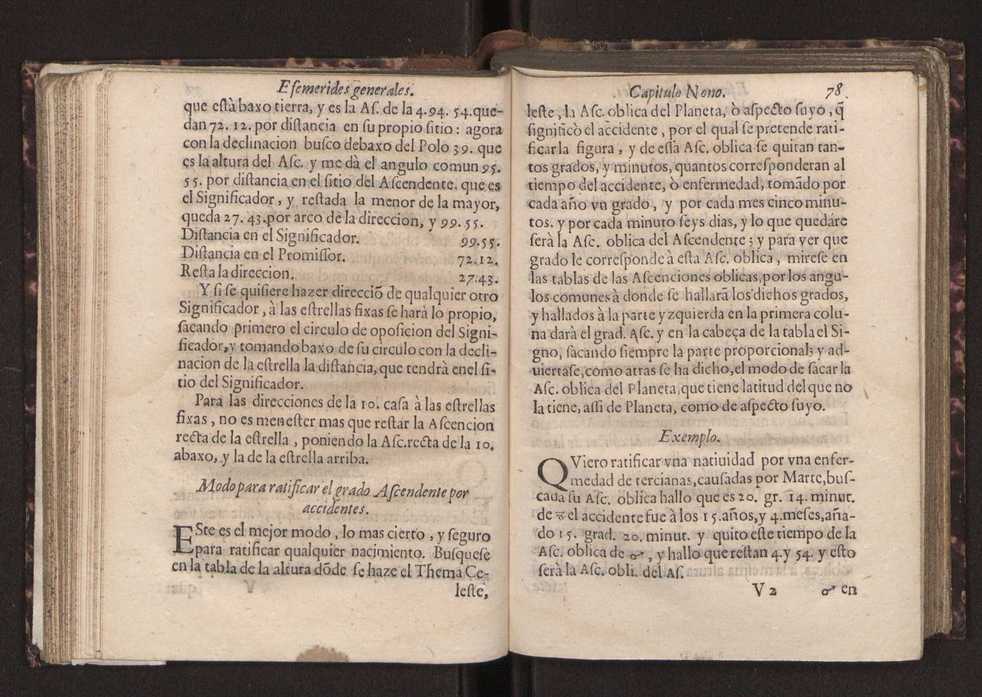 Efemerides generales.
que està baxo tierra, y es la As. de la 4.94. 54.que-
dan 72. 12. por distancia en su propio sitio : agora
con la declinacion busco debaxo del Polo 39. que
es la altura del Asc. y me dà el angulo comun 95.
55. por distancia en el sitio del Ascendente. que es
el Significador, y restada la menor de la mayor,
queda 27. 43.por arco de la direccion, y 99. 55.
Distancia en el Significador. 99.55.
Distancia en el Promissor. 72.12.
Resta la direccion. 27.43.
Y si se quisiere hazer direcciõ de qualquier otro
Significador, à las estrellas fixas se harà lo propio,
sacando primero el circulo de oposicion del Signi-
ficador,y tomando baxo de su circulo con la decli-
nacion de la estrella la distancia, que tendrà enel si-
tio del Significador.
Para las direcciones de la 10. casa à las estrellas
fixas, no es menester mas que restar la Ascencion
recta de la estrella, poniendo la Asc.recta de la 10.
abaxo, y la de la estrella arriba.
Modo para ratificar el grado Ascendente por
accidentes.
ESte es el mejor modo, lo mas cierto, y seguro
para ratificar qualquier nacimiento. Busquese
en la tabla de la altura dõde se haze el Thema Ce-
leste,
Capitulo Nono. 78.
leste, la Asc. oblica del Planeta, ò aspecto suyo, q̃
significò el accidente, por el qual se pretende rati-
ficar la figura, y de esta Asc. oblica se quitan tan-
tos grados, y minutos, quantos corresponderan al
tiempo del accidente, ò enfermedad, tomãdo por
cada año vn grado, y por cada mes cinco minu-
tos. y por cada minuto seys dias, y lo que quedàre
serà la Asc. oblica del Ascendente; y para ver que
grado le corresponde à esta Asc. oblica, mirese en
las tablas de las Ascenciones oblicas, por los angu-
los comunes à donde se hallarà los dichos grados,
y hallados à la parte yzquierda en la primera colu-
na darà el grad. Asc. y en la cabeça de la tabla el Si-
gno, sacando siempre la parte proporcional; y ad-
uiertase,como atras se ha dicho,el modo de sacar la
Asc. oblica del Planeta, que tiene latitud del que no
la tiene, assi de Planeta, como de aspecto suyo.
Exemplo.
QViero ratificar vna natiuidad por vna enfer-
medad de tercianas,causadas por Marte,bus-
caua su Asc. oblica hallo que es 20. gr. 14. minut.
de ♉ el accidente fue à los 15.años,y 4.meses,aña-
do 15. grad. 20. minut. y quito este tiempo de la
Asc. oblica de ♂, y hallo que restan 4.y 54. y esto
serà la Asc. obli. del As.
V 2 ♂ en